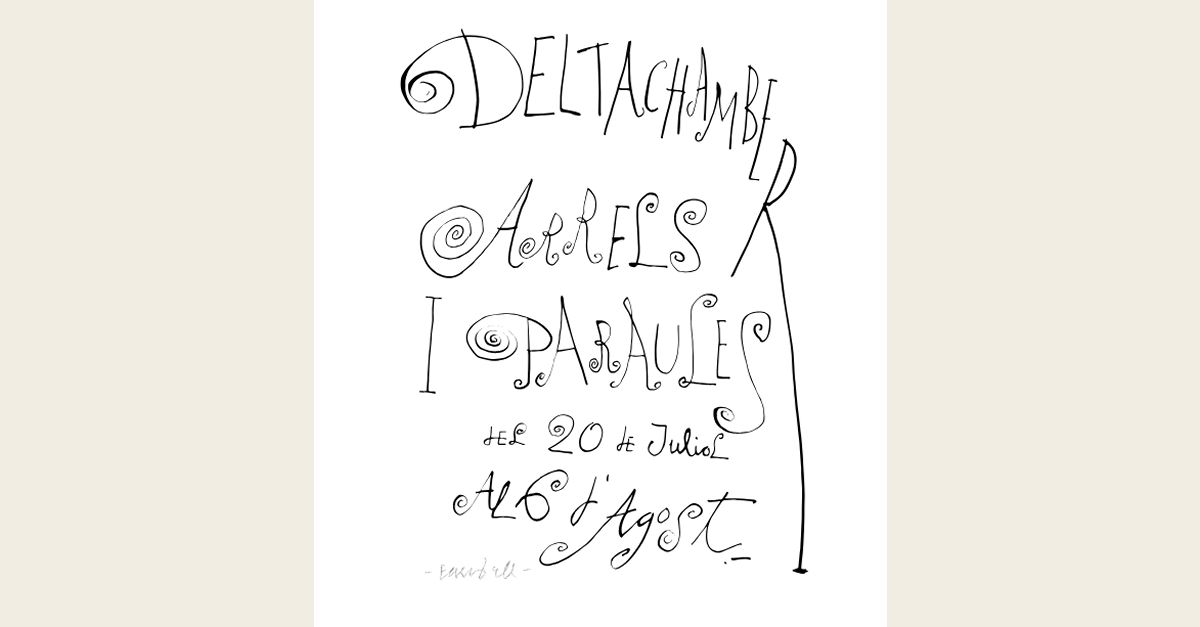 DELTACHAMBER
ARRELS
I PARAULES
dEL 20 dE Juliol
AL 6 d'Agost